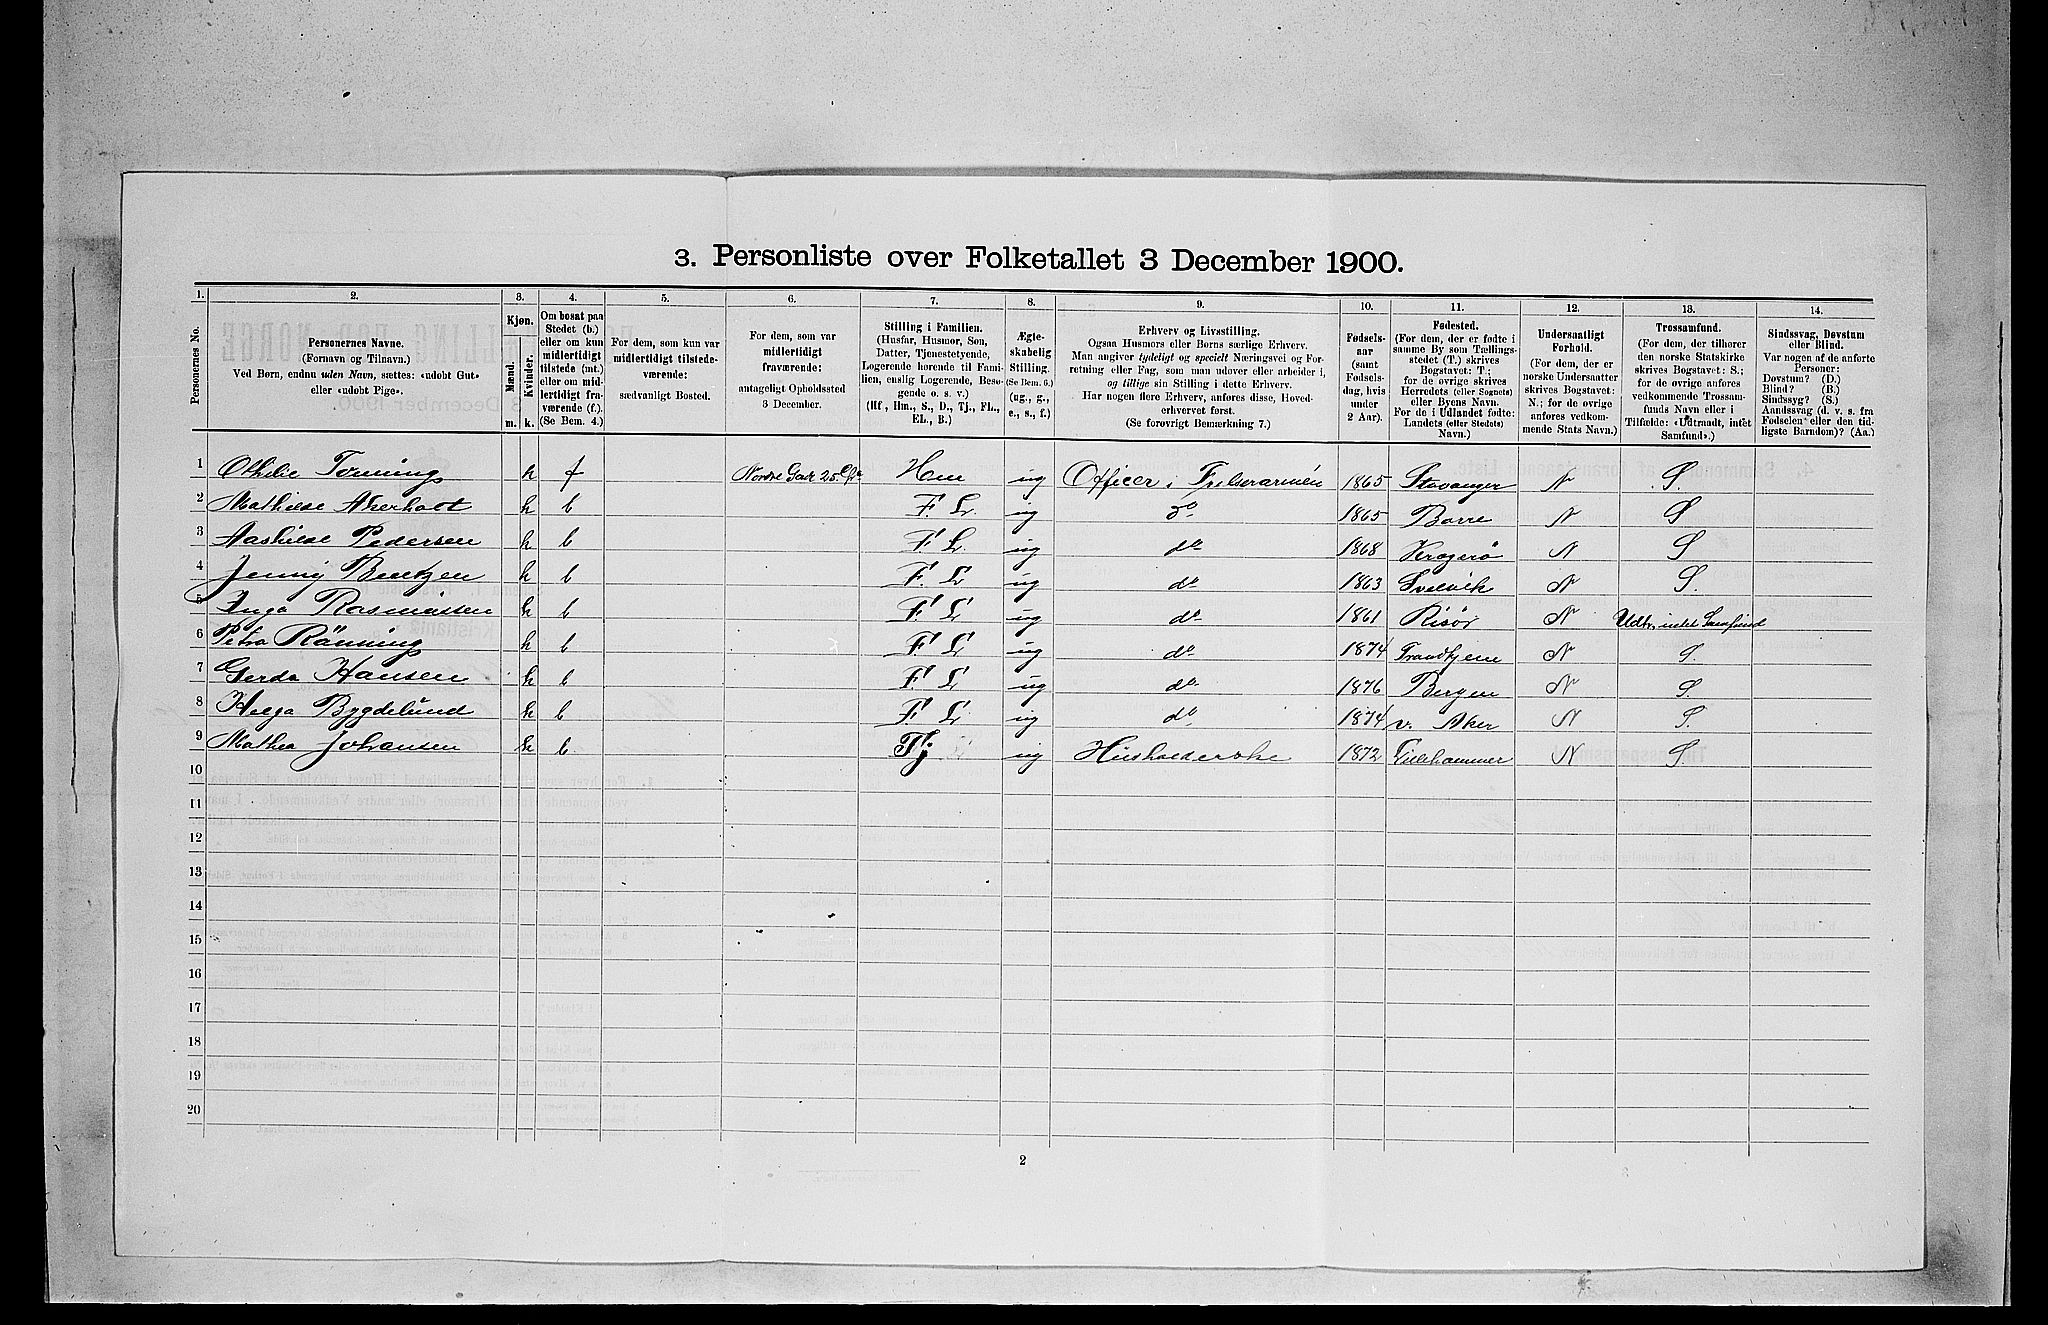 3. Personliste over Folketallet 3 December 1900.
1. 2. 3. 4. 5. 6. 7. 8. 9. 10. 11. 12. 13. 14.
Personernes No.
Personernes Navne.
(Fornavn og Tilnavn.)
Ved Børn, endnu uden Navn, sættes: «udøbt Gut»
eller «udøbt Pige».
Kjøn.
Mænd.
Kvinder.
m. k.
Om bosat paa
Stedet (b.)
eller om kun
midlertidigt
tilstede (mt.)
eller om mid-
lertidigt fra-
værende (f.)
(Se Bem. 4.)
For dem, som kun var
midlertidigt tilstede-
værende:
sædvanligt Bosted.
For dem, som var
midlertidigt
fraværende:
antageligt Opholdssted
3 December.
Stilling i Familien.
(Husfar, Husmor, Søn,
Datter, Tjenestetyende,
Logerende hørende til Fami-
lien, enslig Logerende, Besø-
gende o. s. v.)
(Hf., Hm., S., D., Tj., FL.,
EL., B.)
Ægte-
skabelig
Stilling.
(Se Bem. 6.)
(ug., g.,
e., s., f.)
Erhverv og Livsstilling.
Ogsaa Husmors eller Børns særlige Erhverv.
Man angiver tydeligt og specielt Næringsvei og For-
retning eller Fag, som man udøver eller arbeider i,
og tillige sin Stilling i dette Erhverv.
Har nogen flere Erhverv, anføres disse, Hoved-
erhvervet først.
(Se forøvrigt Bemærkning 7.)
Fødsels-
aar
(samt
Fødsels-
dag, hvis
under
2 Aar).
Fødested.
(For dem, der er fødte i
samme By som Tællings-
stedet (T.) skrives
Bogstavet: T.;
for de øvrige skrives
Herredets (eller Sognets)
eller Byens Navn.
For de i Udlandet fødte:
Landets (eller Stedets)
Navn.)
Undersaatligt
Forhold.
(For dem, der er
norske Undersaatter
skrives Bogstavet:
N.; for de øvrige
anføres vedkom-
mende Stats Navn.)
Trossamfund.
(For dem, der tilhører
den norske Statskirke
skrives Bogstavet: S.;
for de øvrige anføres
vedkommende Trossam-
funds Navn eller i
Tilfælde: «Udtraadt, intet
Samfund».)
Sindssvag, Døvstum
eller Blind.
Var nogen af de anførte
Personer:
Døvstum? (D.)
Blind? (B.)
Sindssyg? (S.)
Aandssvag (d. v. s. fra
Fødselen eller den tid-
ligste Barndom)? (Aa.)
1 Othilie Tonning k f Nordre Hm ug Officer i Frelserarméen 1865 Stavanger N S.
2 Mathilde Akerholt k b F. L. ug do 1865 Borre N S
3 Aashilde Pedersen k b F L. ug do 1868 Kragerø N S
4 Jenny Bentzen k b F. L ug do 1863 Svelvik N S.
5 Inga Rasmussen k b F. L ug do 1861 Risør N Udtr. intet Samfund
6 Petra Rönning k b F L ug do 1874 Trondhjem N S.
7 Gerda Hansen k b F. L ug do 1876 Bergen N S.
8 Helga Bygdelund k b F. L ug do 1874 v. Aker N S.
9 Mathea Johansen k b. Tj ug Husholderske 1872 Lillehammer N S.
10
11
12
13
14
15
16
17
18
19
20
2